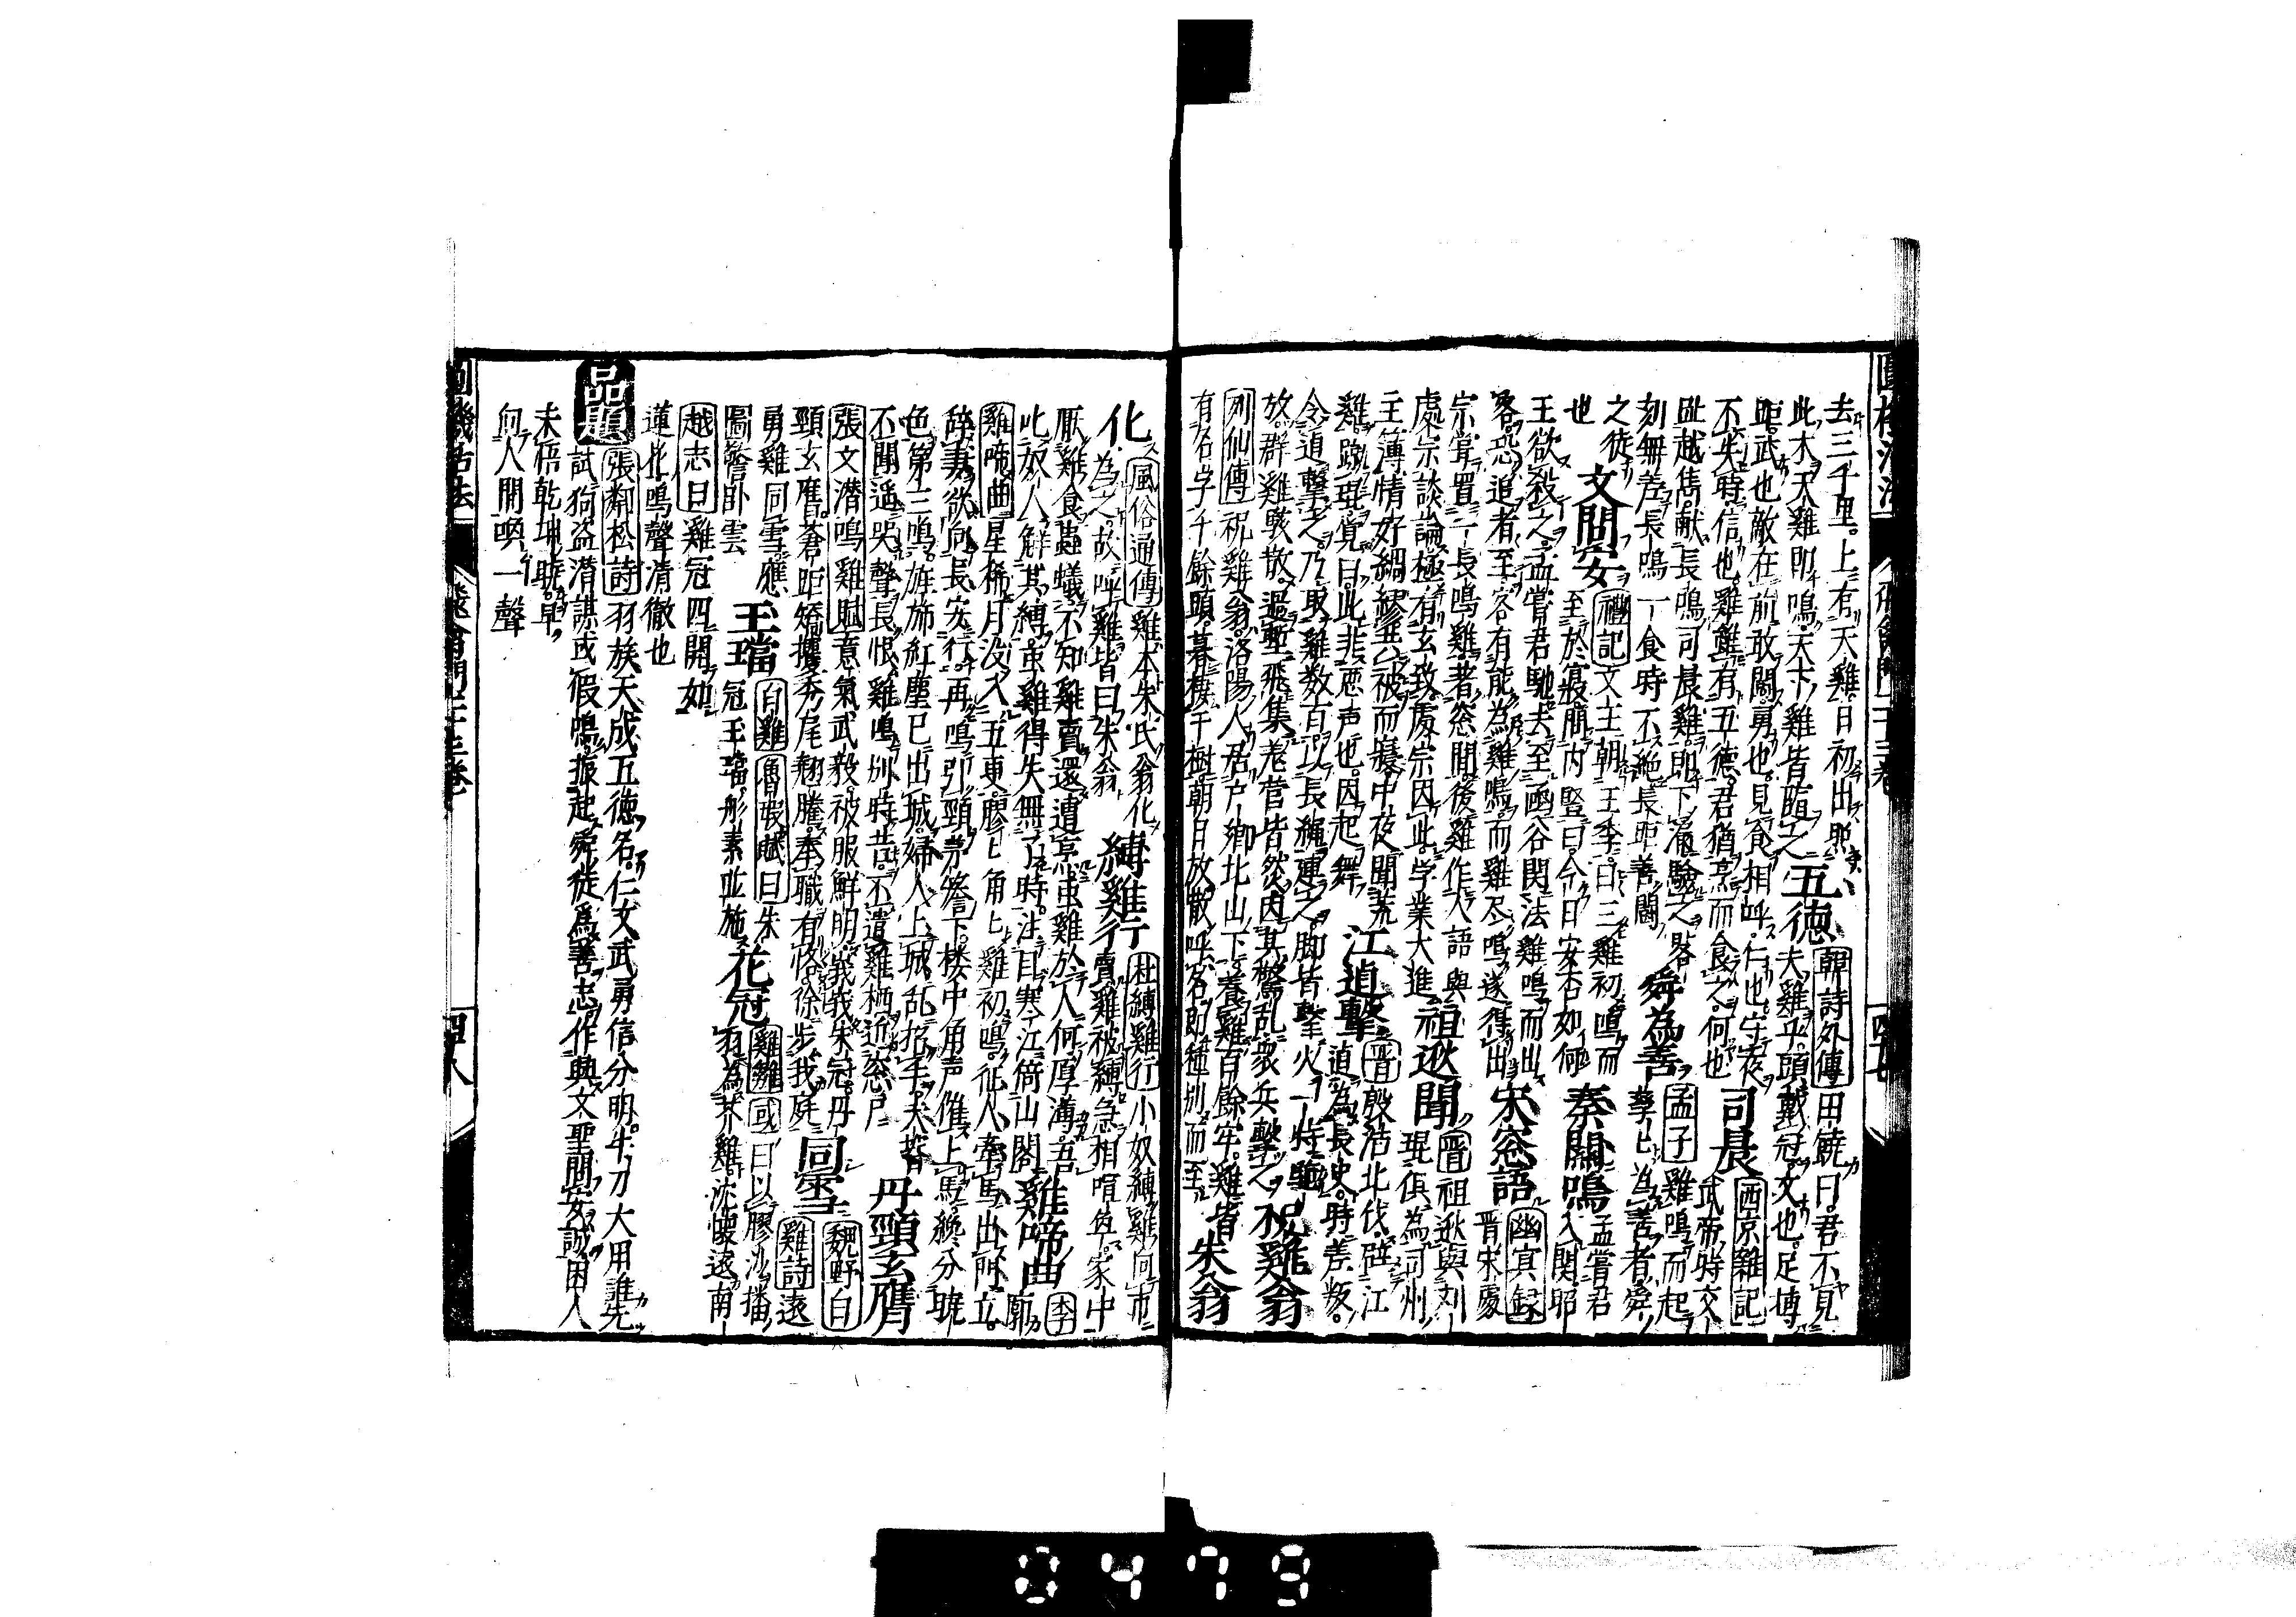 去三千里上有天雞日初出照
此木天雞即鳴天下雞皆隨之五德韓詩外傳田饒曰君不見
夫雞乎頭戴冠文也足搏
距武也敵在前敢鬪勇也見食相呼仁也守夜
不失時信也雞雖有五德君猶烹而食之何也司晨西京雜記
武帝時交
趾越雋獻長鳴司晨雞即下漏驗之晷
刻無差長鳴一食時不絕長距善鬪舜為善孟子雞鳴而起
孳〻為善者舜
之徒
也文問安禮記文王朝王季曰三雞初鳴而
至於寢門內豎曰今日安否如何秦關鳴孟嘗君
入関昭
王欲殺之孟嘗君馳去至函谷関法雞鳴而出
客恐追者至客有能為雞鳴而雞尽鳴遂得出宋窓語幽冥録
晋宋處
宗甞置一長鳴雞著窓間後雞作人語與
處宗談論極有玄致處宗因此学業大進祖逖聞晋祖逖與刘
琨俱為司州
主簿情好綢繆共被而寢中夜聞荒
雞蹴琨覺曰此非悪声也因起舞江逌擊晋殷浩北伐
江逌為長史時羌叛
令逌擊之乃取雞数百以長繩連之脚皆繫火一時驅
放群雞駭散過塹飛集羌営皆然因其驚乱衆兵擊之祝雞翁
列仙傳祝雞翁洛陽人居尸鄉北山下養雞百餘年雞皆
有名字千餘頭暮棲于樹朝日放散呼名即種別而至朱翁
化風俗通傳雞本朱氏翁化
為之故呼雞皆曰朱翁縛雞行杜縛雞行小奴縛雞向市
賣雞被縛急相喧争家中
厭雞食蟲蟻不知雞賣還遭烹虫雞於人何厚薄吾
此奴人解其縛虫雞得失無了時注目寒江倚山閣雞啼曲李廓
雞啼曲星稀月没入五更膠〻角〻雞初鳴征人牽馬出門立
辞妻欲向長安行再鳴引頸旁簷下楼中角声催上馬纔分曉
色第三鳴旌斾紅塵已出城婦人上城乱招手夫婿
不聞遥哭聲長恨雞鳴別時苦不遣雞栖近窓戸丹頸玄膺
張文潜鳴雞賦意氣武毅被服鮮明峩峩朱冠丹
頸玄膺蒼距矯攫秀尾翹騰奉職有恪徐步我庭同雪魏野白
雞詩遠
勇雞同雪應
圖簷卧雲王璫白雞魯瑕賦曰朱
冠王璫彤素並施花冠雞雝或曰以膠沙播
羽為芥雞沈懐遠南
越志曰雞冠四開如
蓮花鳴聲清徹也
品題張鄰松詩羽族天成五徳名仁文武勇信分明牛刀大用誰先
試狗盗潜謀或假鳴振起舜徒為善志作興文聖問安誠困人
未悟乾坤暁早
何人開喚一聲
四十七
四十八
0479